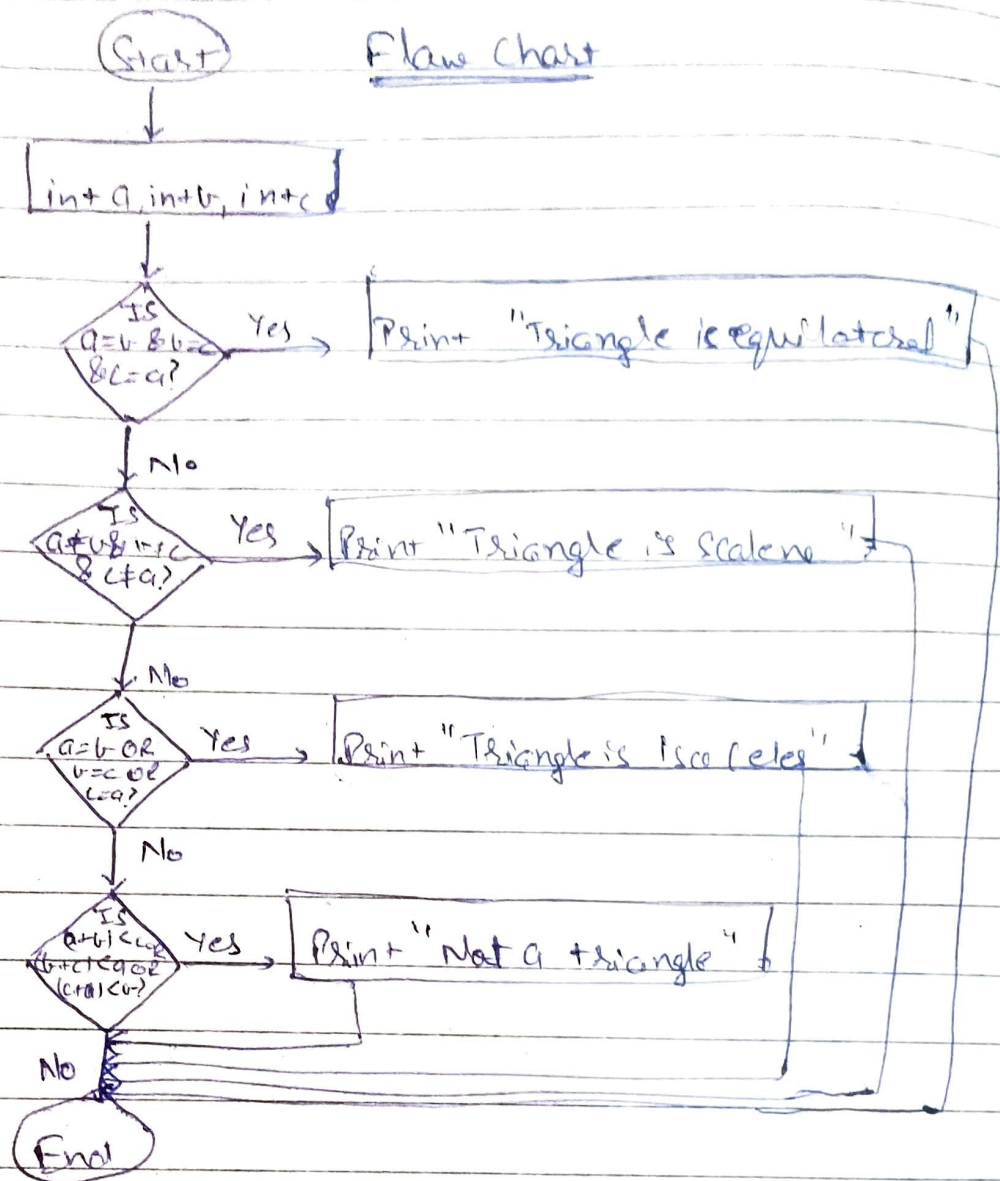 Start
Flow Chart
int a, int b, int c
Is
a=b & b=c
& c=a?
Yes
Print "Triangle is equilateral"
No
Is
a≠b & b≠c
& c≠a?
Yes
Print "Triangle is Scalene"
No
Is
a=b OR
b=c OR
c=a?
Yes
Print "Triangle is Isosceles"
No
Is
(a+b)<c OR
(b+c)<a OR
(c+a)<b?
Yes
Print "Not a triangle"
No
End